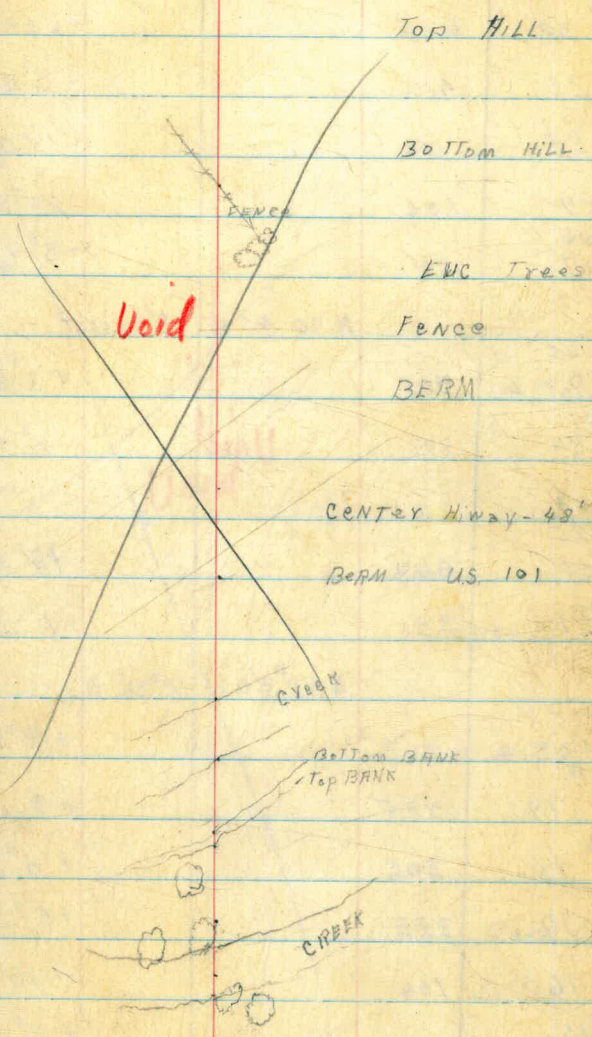 Top HILL
BoTTom HiLL
FENCe
EUC Trees
Void
FeNce
BERM
CeNTer Hiway - 48'
BeRM U.S. 101
CreeK
BoTTom BANK
Top BANK
CREEK